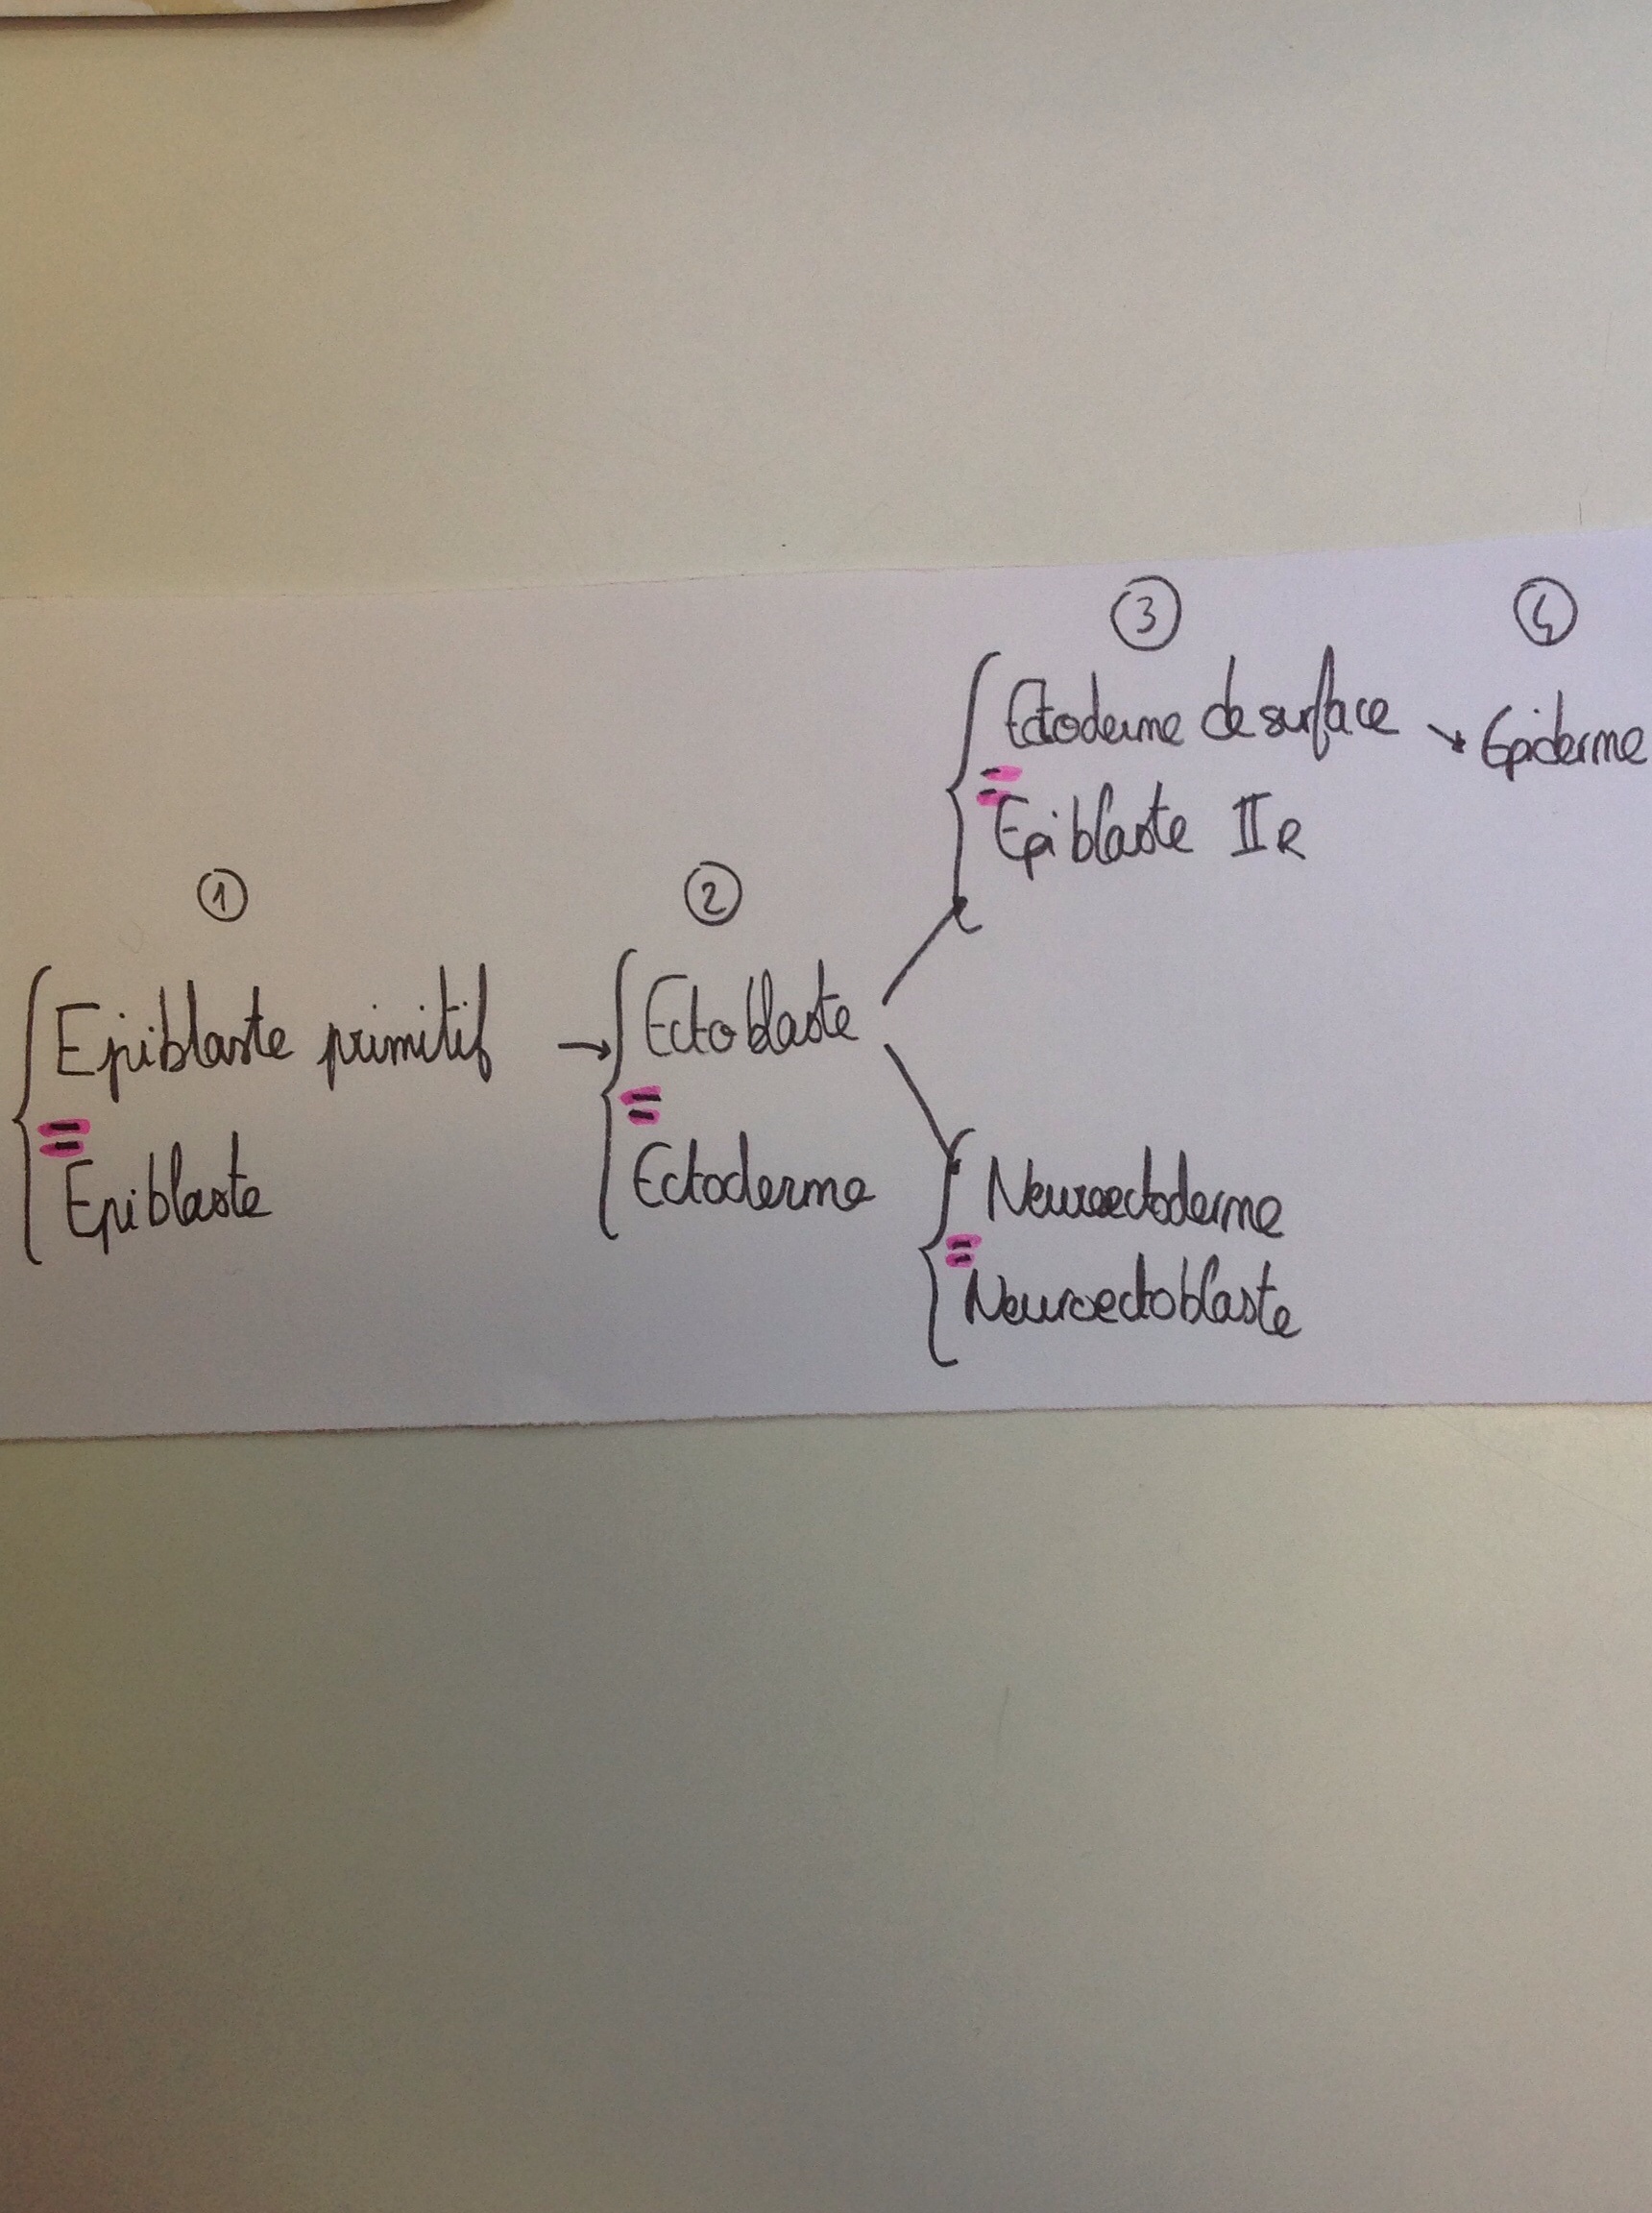 ① Epiblaste primitif
=
Epiblaste
→
② Ectoblaste
=
Ectoderme
③ Ectoderme de surface
=
Epiblaste IIR
④ Epiderme
Neuroectoderme
=
Neuroectoblaste